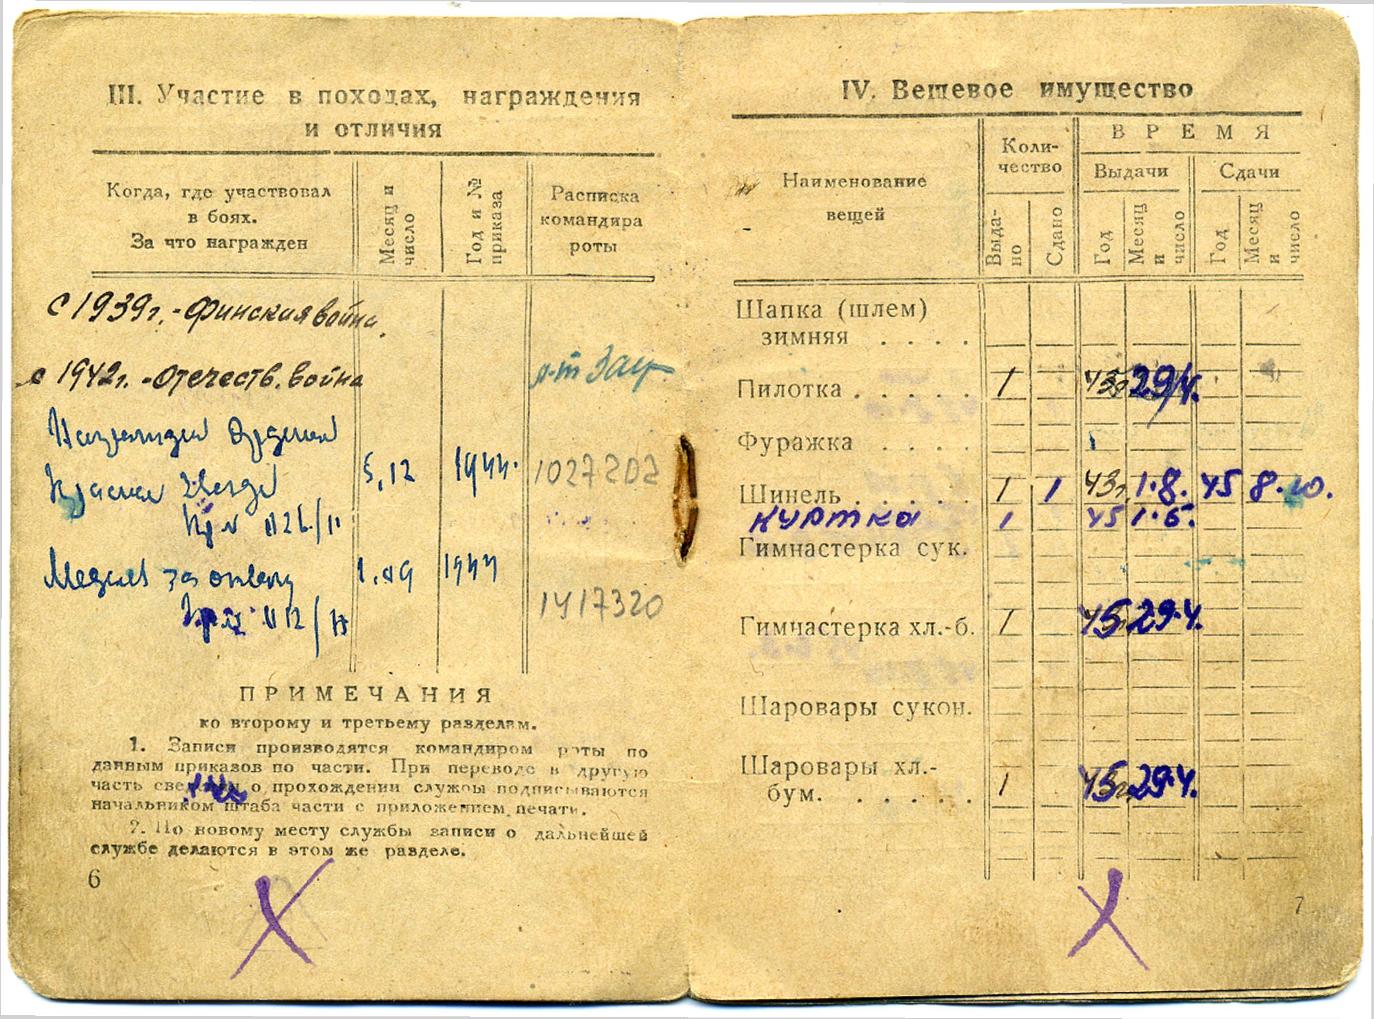 III. Участие в походах, награждения
и отличия
Когда, где участвовал
в боях.
За что награжден
Месяц и
число
Год и №
приказа
Расписка
командира
роты
с 1939г. - Финская война.
с 1942г. - Отечеств. война
Награжден Орденом
Красная Звезда 5,12 1944. 1027202
Пр N 026/н
Медаль за отвагу 1.09 1944
1417320
012/н
ПРИМЕЧАНИЯ
ко второму и третьему разделам.
1. Записи производятся командиром роты по
данным приказов по части. При переводе в другую
часть сведения о прохождении службы подписываются
начальником штаба части с приложением печати.
2. По новому месту службы записи о дальнейшей
службе делаются в этом же разделе.
6
IV. Вещевое имущество
Наименование
вещей
Коли-
чество
ВРЕМЯ
Выдачи
Сдачи
Выда-
но
Сдано
Год
Месяц
и
число
Год
Месяц
и
число
Шапка (шлем)
зимняя . . . .
Пилотка . . . . . 1 43г 29/4.
Фуражка . . . . .
Шинель . . . . . 1 1 43г 1.8. 45 8.10.
Куртка 1 45 1.5.
Гимнастерка сук.
Гимнастерка хл.-б. 1 45 29.4.
Шаровары сукон.
Шаровары хл.-
бум. . . . . . 1 45г 29.4.
7